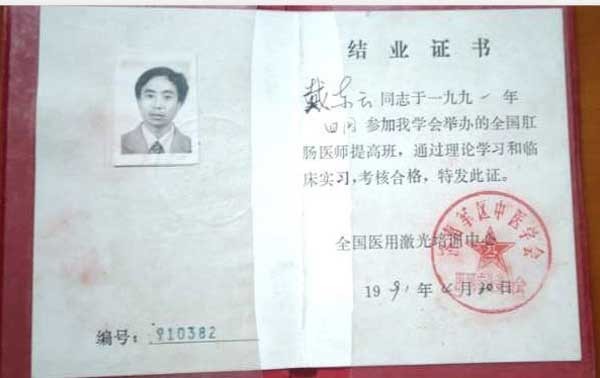 结业证书
戴东云同志于一九九一年
四月参加我学会举办的全国肛
肠医师提高班，通过理论学习和临
床实习，考核合格，特发此证。
全国医用激光培训中心
军区中医学会
1991年4月30日
编号：910382